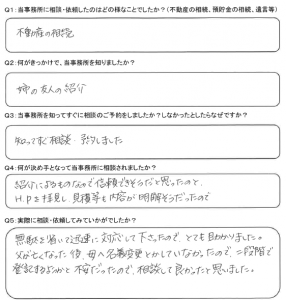 Q1：当事務所に相談・依頼したのはどの様なことでしたか？（不動産の相続、預貯金の相続、遺言等）
不動産の相続
Q2：何がきっかけで、当事務所を知りましたか？
姉の友人の紹介
Q3：当事務所を知ってすぐに相談のご予約をしましたか？しなかったとしたらなぜですか？
知ってすぐ相談 予約しました
Q4：何が決め手となって当事務所に相談されましたか？
紹介によるものなので信頼できそうだと思ったのと、
H.Pを拝見し、見積等も内容が明解そうだったので
Q5：実際に相談・依頼してみていかがでしたか？
無駄を省いて迅速に対応して下さったので、とても助かりました。
父が亡くなった後、母へ名義変更とかしていなかったので、二段階で
登記するのかと不安だったので、相談して良かったと思いました。